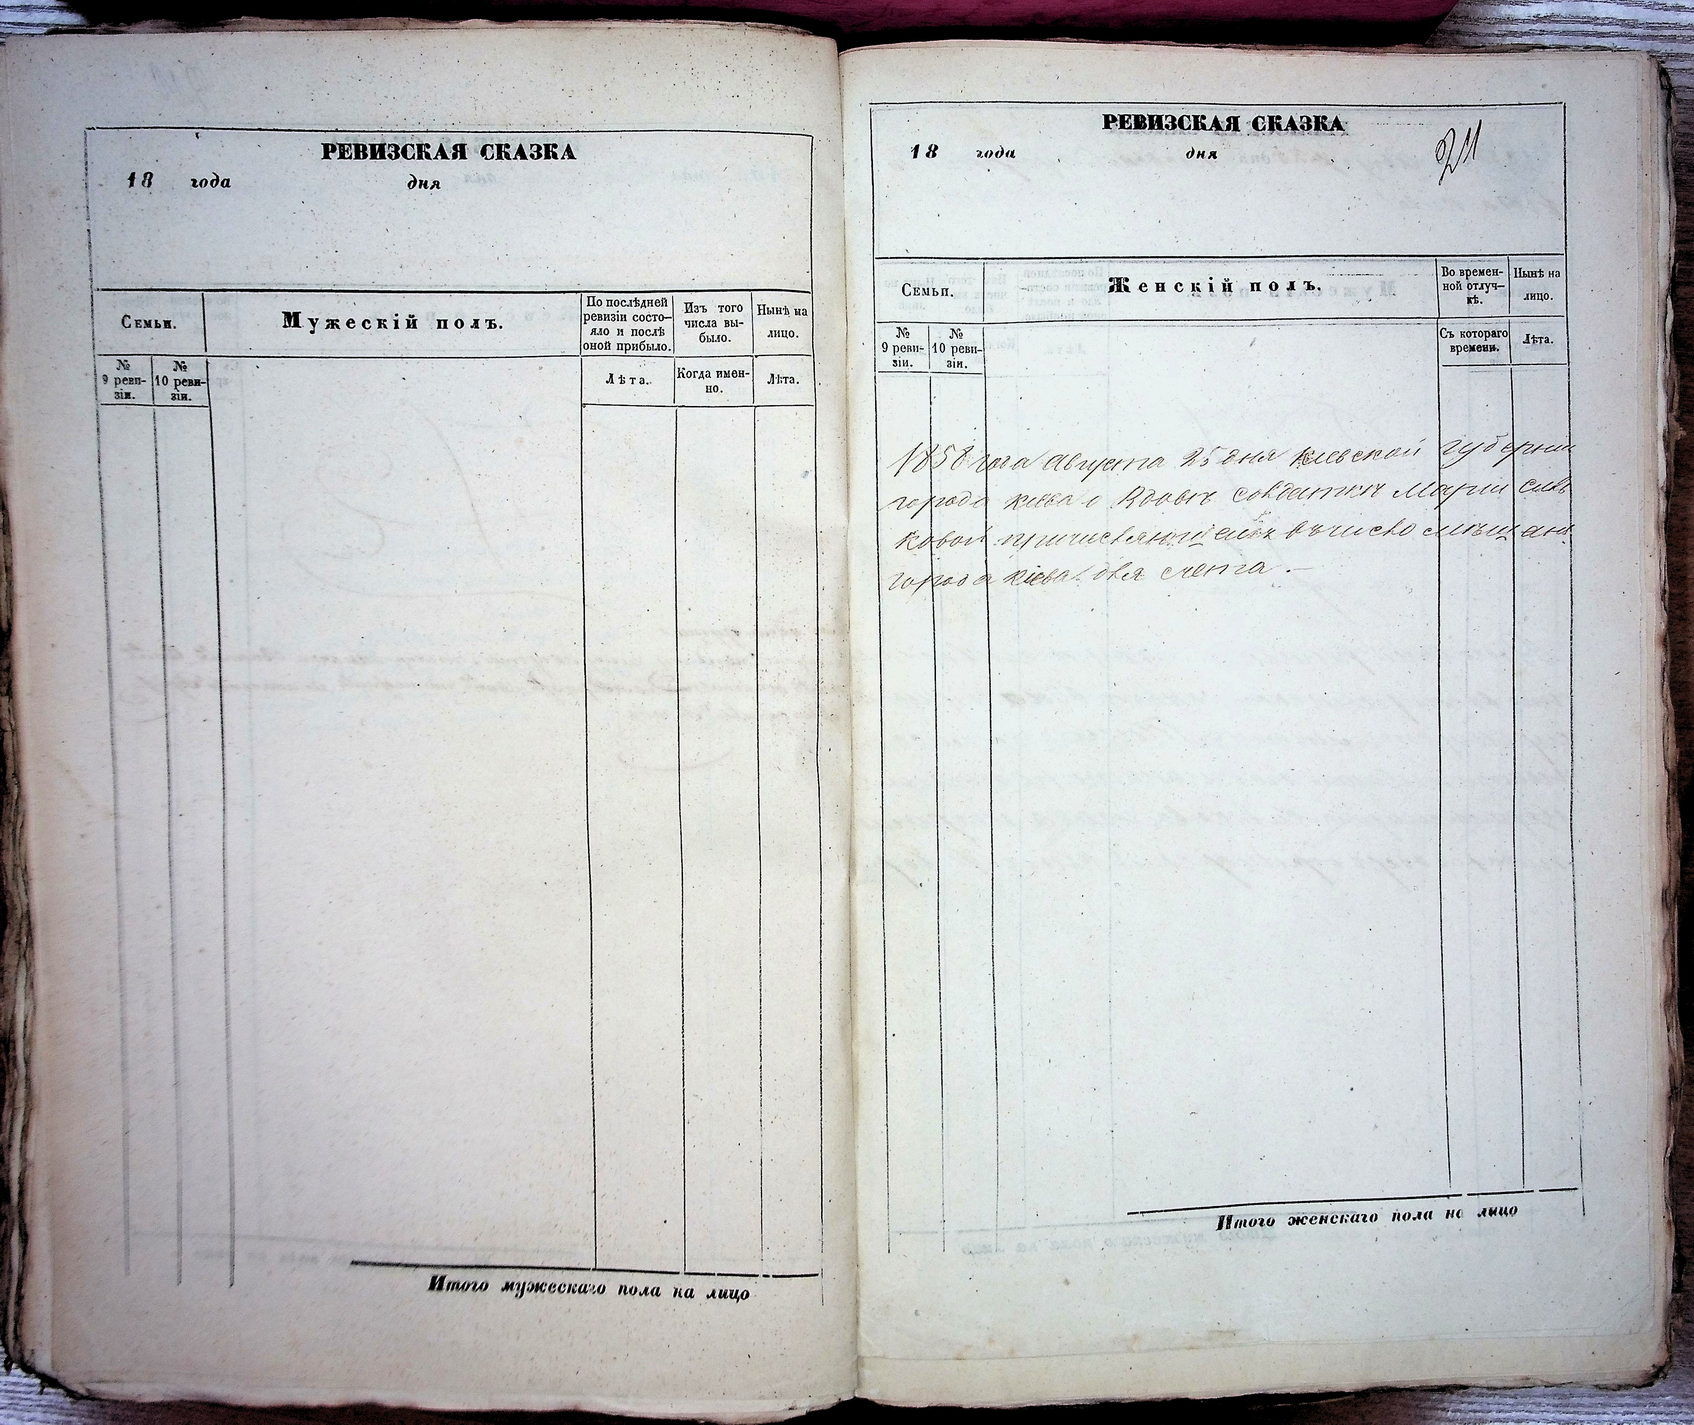 РЕВИЗСКАЯ СКАЗКА
18 года дня
Семьи.
Мужескій полъ.
По послѣдней
ревизіи состо-
яло и послѣ
оной прибыло.
Изъ того
числа вы-
было.
Нынѣ на
лицо.
№
9 реви-
зіи.
№
10 реви-
зіи.
Лѣта.
Когда имен-
но.
Лѣта.
Итого мужескаго пола на лицо
РЕВИЗСКАЯ СКАЗКА
211
18 года дня
Семьи.
Женскій полъ.
Во времен-
ной отлуч-
кѣ.
Нынѣ на
лицо.
№
9 реви-
зіи.
№
10 реви-
зіи.
Съ котораго
времени.
Лѣта.
1858 года Августа 25 дня Кіевской губерніи
города Кіева о Вдовѣ солдаткѣ Маріи
ковой причисляющейся въ число мѣщанъ
города Кіева для счета.
Итого женскаго пола на лицо